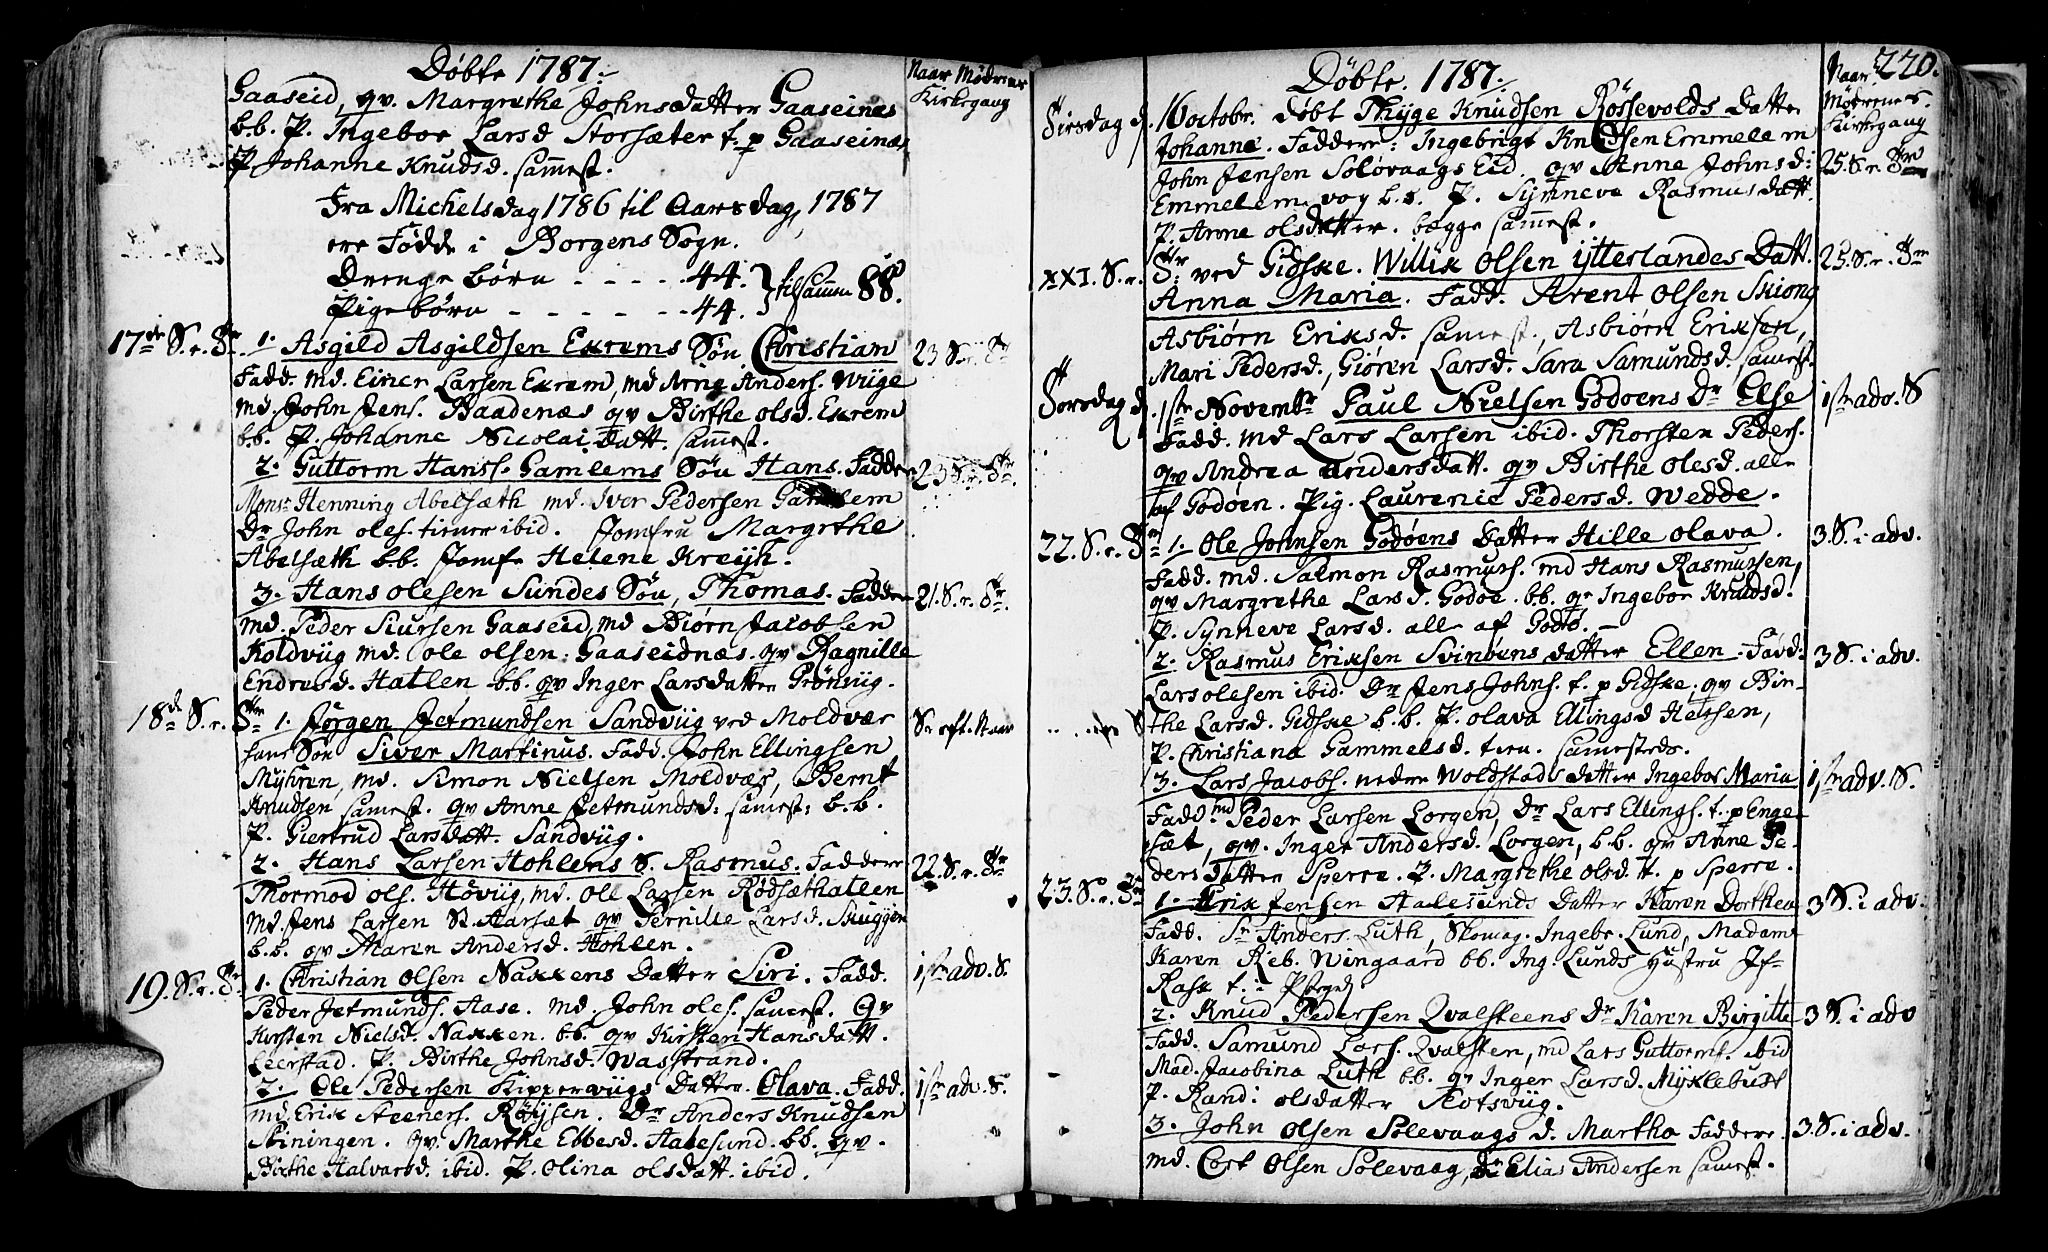 Døbte 1787.
Naar Mødrenes
Kirkegang
Gaaseid, qv. Margrethe Johnsdatter Gaaseines
b.b. P. Ingebor Larsd Storsæter t. p Gaaseinæs
P Johanne Knudsd. samest.
Fra Michelsdag 1786 til Aarsdag, 1787
ere Fødde i Borgens Sogn.
Drenge børn - - - - - 44.
Pige børn - - - - - - 44.
tilsamm 88.
17de S. e. Ftr. 1. Asgild Asgildsen Exrems Søn Christian 23 S. e. Ftr
Fadd. md. Einer Larsen Exrem, md Arne Anders. Wiige
md. John Jens. Baadenæs qv Birthe olsd. Exrem
b.b. P. Johanne Nicolai Datt. samest.
2. Guttorm Hanss. Gamlems Søn Hans. Faddere 23 S. e. Ftr.
Monsr Henning Abelsæth md. Iver Pedersen Gamlem
Dr John oles. tiener ibid. Jomfru Margrethe
Abelsæth b.b. Jomfr Helene Kreyh.
3. Hans olesen Sundes Søn, Thomas. Faddere 21. S. e. Ftr.
md. Peder Siursen Gaaseid, md Biørn Jacobsen
Koldviig md. ole olsen Gaaseidnæs. qv Ragnille
Endresd. Hatlen b.b. qv Inger Larsdatter Grönviig.
18de S. e. Ftr 1. Jørgen Jetmundsen Sandviig ved Moldvær S. eft. Naar
hans Søn Siver Martinus. Fadd. John Ellingsen
Myhren, md. Simon Nielsen Moldvær, Bernt
Knudsen samest. qv Anne Jetmundsd. samest. b.b.
P. Giertrud Larsdatt. Sandviig.
2. Hans Larsen Hohlens S. Rasmus. Faddere 22. S. e. Ftr
Thormod ols. Høviig, md. Ole Larsen Rødsæthatlen
md. Jens Larsen St. Aarsæt qv Pernille Larsd. Skuggen
b.b. qv Maren Andersd. Hohlen.
19. S. e. Ftr 1. Christian Olsen Nakkens Datter Siri. Fadd. 1ste adv. S.
Peder Jetmunds. Aase. md. John oles. samest. Qv
Kirsten Nielsd. Nakken. b.b. qv Kirsten Hansdatt.
Leerstad. P. Birthe Johnsd. Wasstrand.
2. Ole Pedersen Kipperviigs Datter. Olava. Fadd. 1ste adv. S.
md. Erik Steeners. Röysen. Dr Anders Knudsen
Skiningen. qv. Marthe Ebbesd. Aalesund. b.b. qv.
Birthe Halvarsd. ibid. P. olina olsdatt. ibid.
220.
Døbte. 1787.
Naar
Mødrenes.
Kirkegang
Tirsdag d. 16 octobr. Døbt Thyge Knudsen Rössevolds Datter
Johanne. Faddere: Ingebrigt Knudsen Emmelem
John Jensen Soløvaags Eid. qv Anne Johnsd: 25. S. e. Ftr
Emmelem. vog b.b. P. Synneve Rasmusdatt.
P. Anne olsdatter. bægge samest.
XXI. S. e. Ftr ved Gidske. Willik Olsen Ytterlandes Datt. 25. S. e. Ftr
Anna Maria. Fadd. Arent Olsen Skiong
Asbiørn Eriksd. samest., Asbiørn Eriksen,
Mari Pedersd., Giøren Larsd. Sara Samundsd. samest.
Torsdag d. 1ste Novembr Paul Nielsen Godoens Dr Else 1ste adv. S
Fadd. md Lars Larsen ibid. Thorsten Peders.
qv Andrea Andersdatt. qv Birthe olesd. alle
af Godøen. Pig. Laurenie Pedersd. Wedde.
22. S. e. Ftr 1. Ole Johnsen Godøens Datter Hille olava. 3. S. i adv.
Fadd. md. Salmon Rasmuss. md Hans Rasmussen,
qv Margrethe Larsd. Godøe. b.b. qv Ingebor Knudsd.
P. Synneve Larsd. alle af Godø.
2. Rasmus Eriksen Svinøuns datter Ellen. Fadd. 3 S. i adv.
Lars olesen ibid. Dr Jens Johns. t. p Gidske. qv Bir-
the Larsd. Gidske b.b. P. olava Ellingsd Hessen,
P. Christiana Gammelsd. tien. samesteds.
3. Lars Jacobs. nedre Woldstads datter Ingebor Maria 1ste adv. S.
Fadd. md Peder Larsen Lorgen, Dr Lars Ellings. t. p Enge-
sæt, qv. Inger Andersd. Lorgen, b.b. qv Anne Pe-
ders Datter Sperre. P. Margrethe olsd. t. p Sperre.
23. S. e. Ftr 1. Erik Jensen Aalesunds Datter Karen Dorthea 3 S. i adv.
Fadd. Sr Anders Luth, Skomag. Ingebr. Lund, Madame
Karen Reb. Wingaard b.b. Ing. Lunds Hustru If-
Rask t. i Pgd
2. Knud Pedersen Qvalsteens Dr Karen Birgitte 3 S. i adv
Fadd. Samund Lars. Qvalsten, md Lars Guttorms. ibid
Mad. Jacobina Luth b.b. qv Inger Larsd. Myklebust
P. Randi olsdatter Slotsviig.
3. John Olsen Solevaags d. Martha Faddere. 3 S. i adv.
md. Cort Olsen Solevaag, Dr Elias Andersen samest.